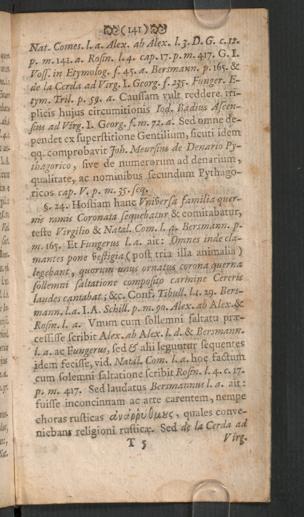 (141)
Nat. Comes. l. a. Alex. ab Alex. l. 3. D. G. c. 12.
p. m. 142. a. Rosin. l. 4. cap. 17. p. m. 417. G. I.
Voss. in Etymolog. f. 45. a. Bersmann. p. 165. &
de la Cerda ad Virg. I. Georg. f. 235. Funger. E-
tym. Tril. p. 59. a. Caussam vult reddere tri-
plicis hujus circumitionis Iod. Badius Ascen-
sius ad Virg. I. Georg. f. m. 72. a. Sed omne de-
pendet ex superstitione Gentilium, sicuti idem
qq. comprobavit Joh. Meursius de Denario Py-
thagorico, sive de numerorum ad denarium,
qualitate, ac nominibus secundum Pythago-
ricos cap. V. p. m. 35. seq.
§. 24. Hostiam hanc Universa familia quer-
nis ramis Coronata sequebatur & comitabatur,
teste Virgilio & Natal. Com. l. 9. Bersmann. p.
m. 165. Et Fungerus l. a. ait: Omnes inde cla-
mantes pone vestigia (post tria illa animalia)
legebant, quorum unus ornatus corona querna
sollemni saltatione composito carmine Cereris
laudes cantabat; &c. Conf. Tibull. l. 1. 29. Bers-
mann. l. a. I. A. Schill. p. m. 90. Alex. ab Alex. &
Rosin. l. a. Unum cum sollemni saltatu præ-
cessisse scribit Alex. ab Alex. l. d. & Bersmann.
l. a. ac Fungerus, sed & alii leguntur sequentes
idem fecisse, vid. Natal. Com. l. a. hoc factum
cum solemni saltatione scribit Rosin. l. 4. c. 17.
p. m. 417. Sed laudatus Bersmannus l. a. ait:
fuisse inconcinnam ac arte carentem, nempe
choras rusticas ἀναῤῥύθμως, quales conve-
niebans religioni rusticæ. Sed de la Cerda ad
T 5 Virg.